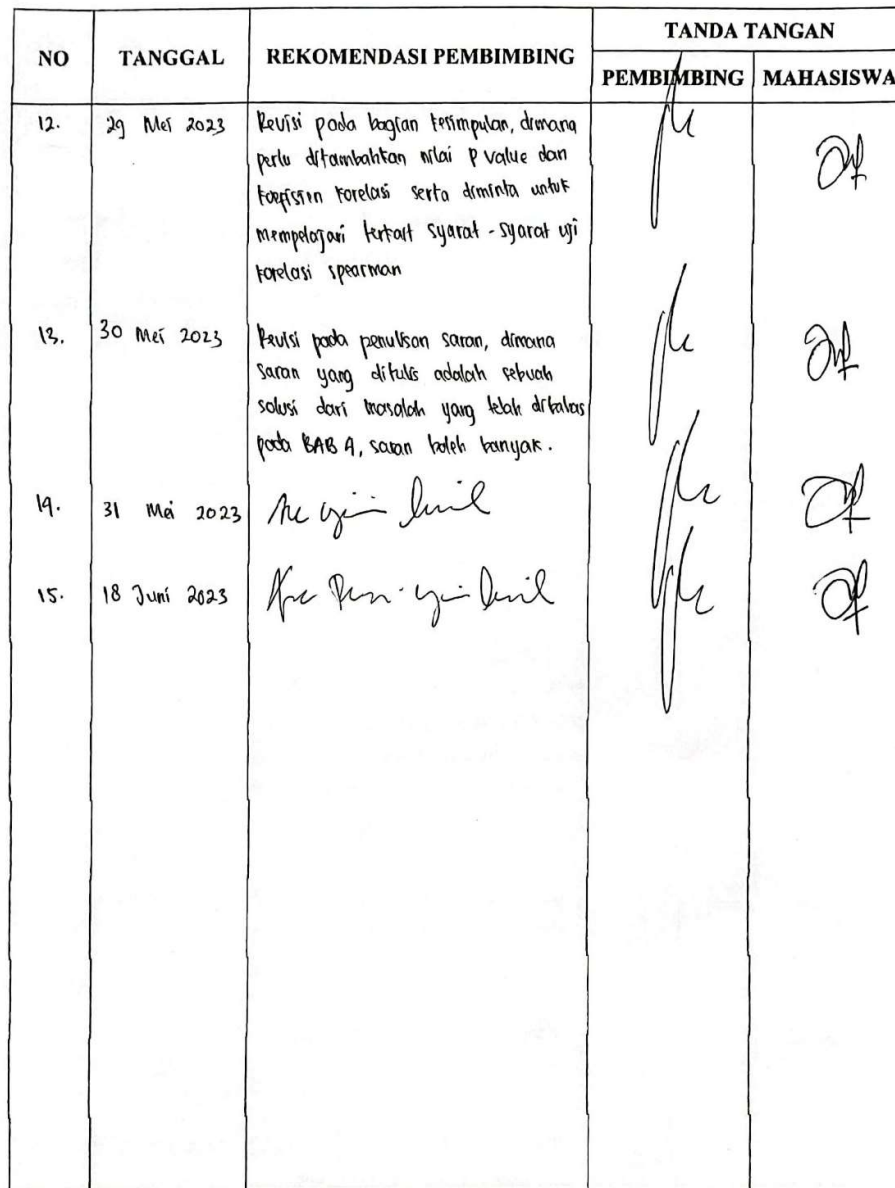 NO TANGGAL REKOMENDASI PEMBIMBING TANDA TANGAN
PEMBIMBING MAHASISWA
12. 29 Mei 2023 Revisi pada bagian kesimpulan, dimana
perlu ditambahkan nilai P value dan
koefisien korelasi serta diminta untuk
mempelajari terkait syarat - syarat uji
korelasi spearman
13. 30 Mei 2023 Revisi pada penulisan saran, dimana
saran yang ditulis adalah sebuah
solusi dari masalah yang telah dibahas
pada BAB 4, saran boleh banyak.
14. 31 Mei 2023 Acc ujian hasil
15. 18 Juni 2023 ujian hasil